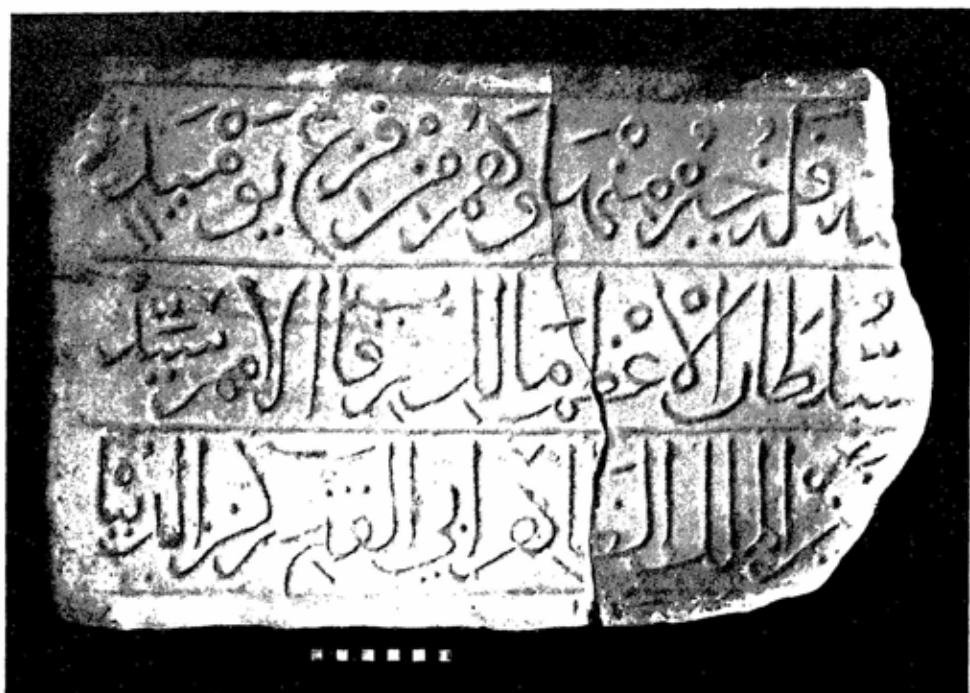 فله خير منها وهم من فزع يومئذ
سلطان الاعظم مالك رقاب الامم سيد
الملك ابي الفتح ركن الدنيا